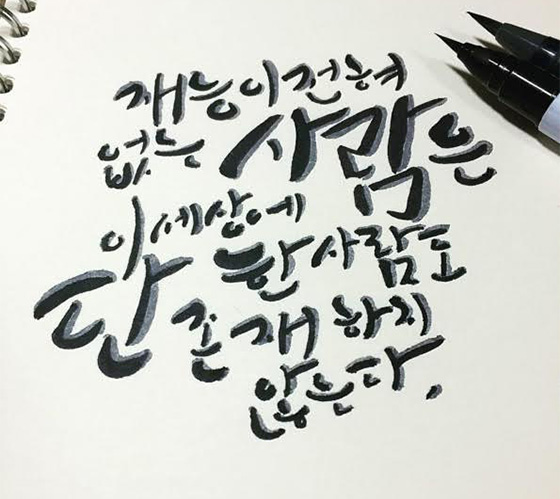 재능이 전혀
없는 사람은
이 세상에
단 한 사람도
존재 하지
않는다.